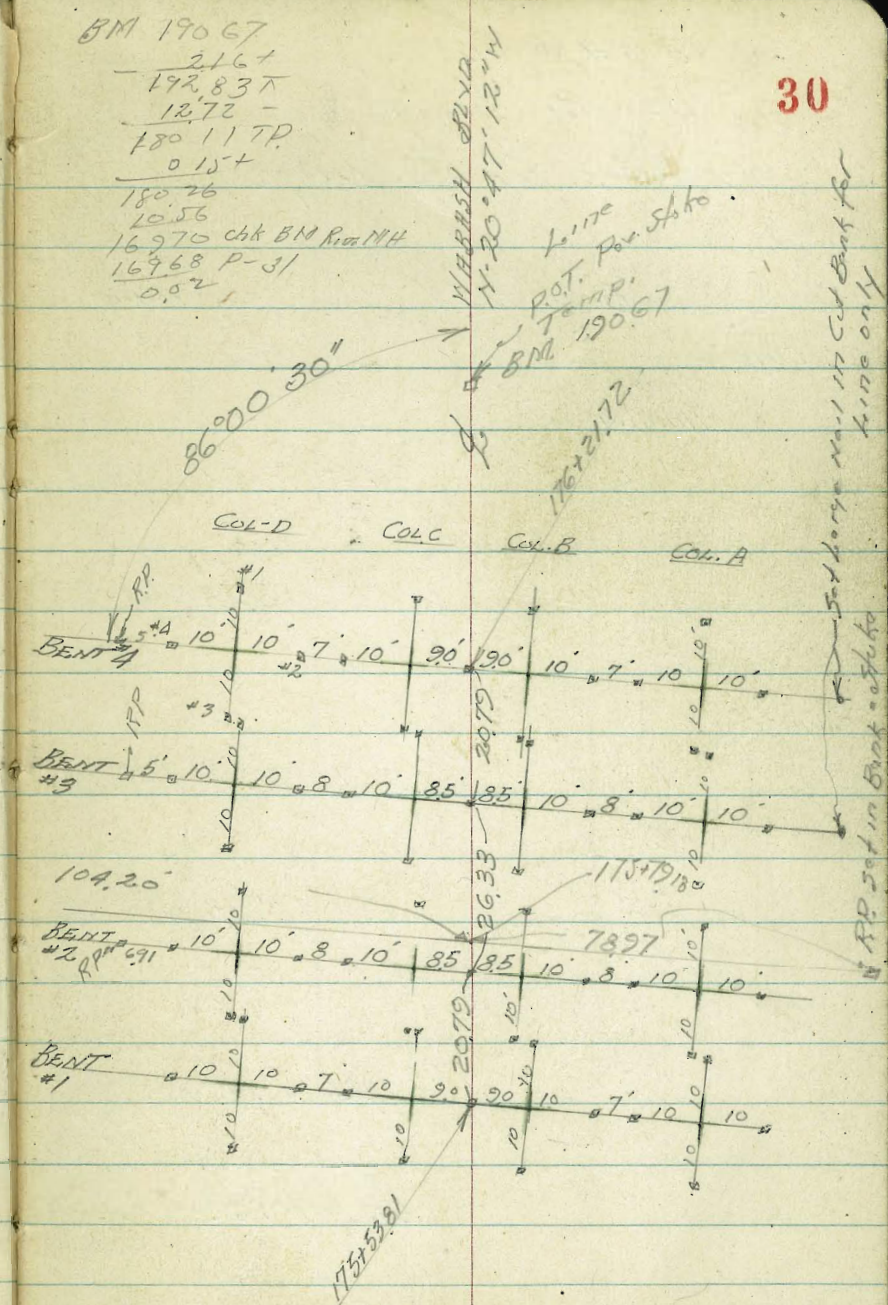 30
BM 190 67
2.16 +
192.83 π
12.72 -
180 11 TP.
0 15 +
180.26
10.56
169.70 chk BM Rim MH
169.68 P-31
0.02
WABASH BLVD
N-20°47'12"W
Line
P.O.T. Pav. Stake
Temp.
BM 190.67
86°00'30"
℄
176+21.72
Set Large Nail in Cut Bank for
Line only
COL-D COL C COL. B COL. A
R.P.
#1
BENT 4 5' #4 10' 10' #2 7' 10' 9.0' 9.0' 10' 7' 10 10'
10 10 10' 10
#3
20.79
R.P.
BENT #3 5' 10' 10' 8 10' 8.5' 8.5' 10' 8' 10' 10'
10 10 10 10
26.33
175+79.18
104.20
78.97
BENT #2 RP 6.91 10' 10' 8 10' 8.5 8.5 10' 8' 10' 10'
10 10 10' 10' 10
20.79
BENT #1 10 10 7' 10 9.0 9.0 10 7' 10 10
10 10 10 10 10 10 10
175+53.81
R.P. Set in Bank = Stake